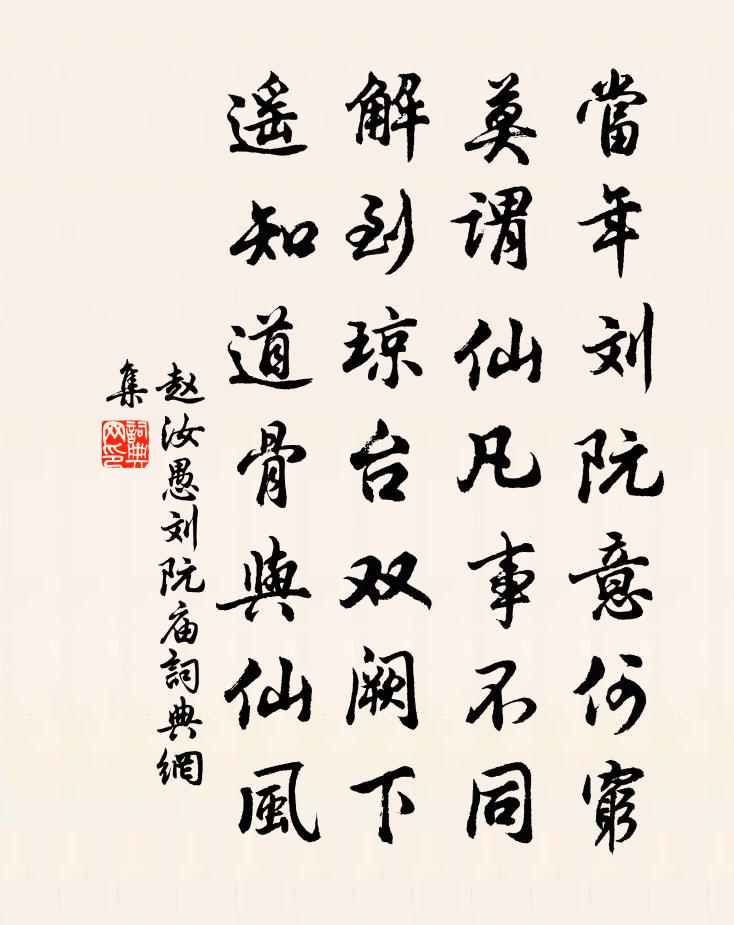 當年刘阮意何窮
莫謂仙凡事不同
解到琼台双阙下
遥知道骨與仙風
赵汝愚刘阮庙詞典網
集
詞典
网印